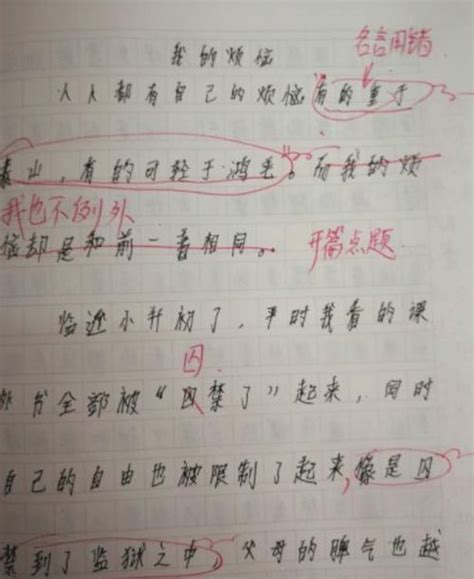 名言用错
我的烦恼
人人都有自己的烦恼有的重于
泰山，有的可轻于鸿毛。而我的烦
我也不例外
恼却是和前一着相同。 开篇点题
临近小升初了，平时我看的课
囚
外书全部被“囚禁了”起来，同时
自己的自由也被限制了起来，像是囚
禁到了监狱之中，父母的脾气也越